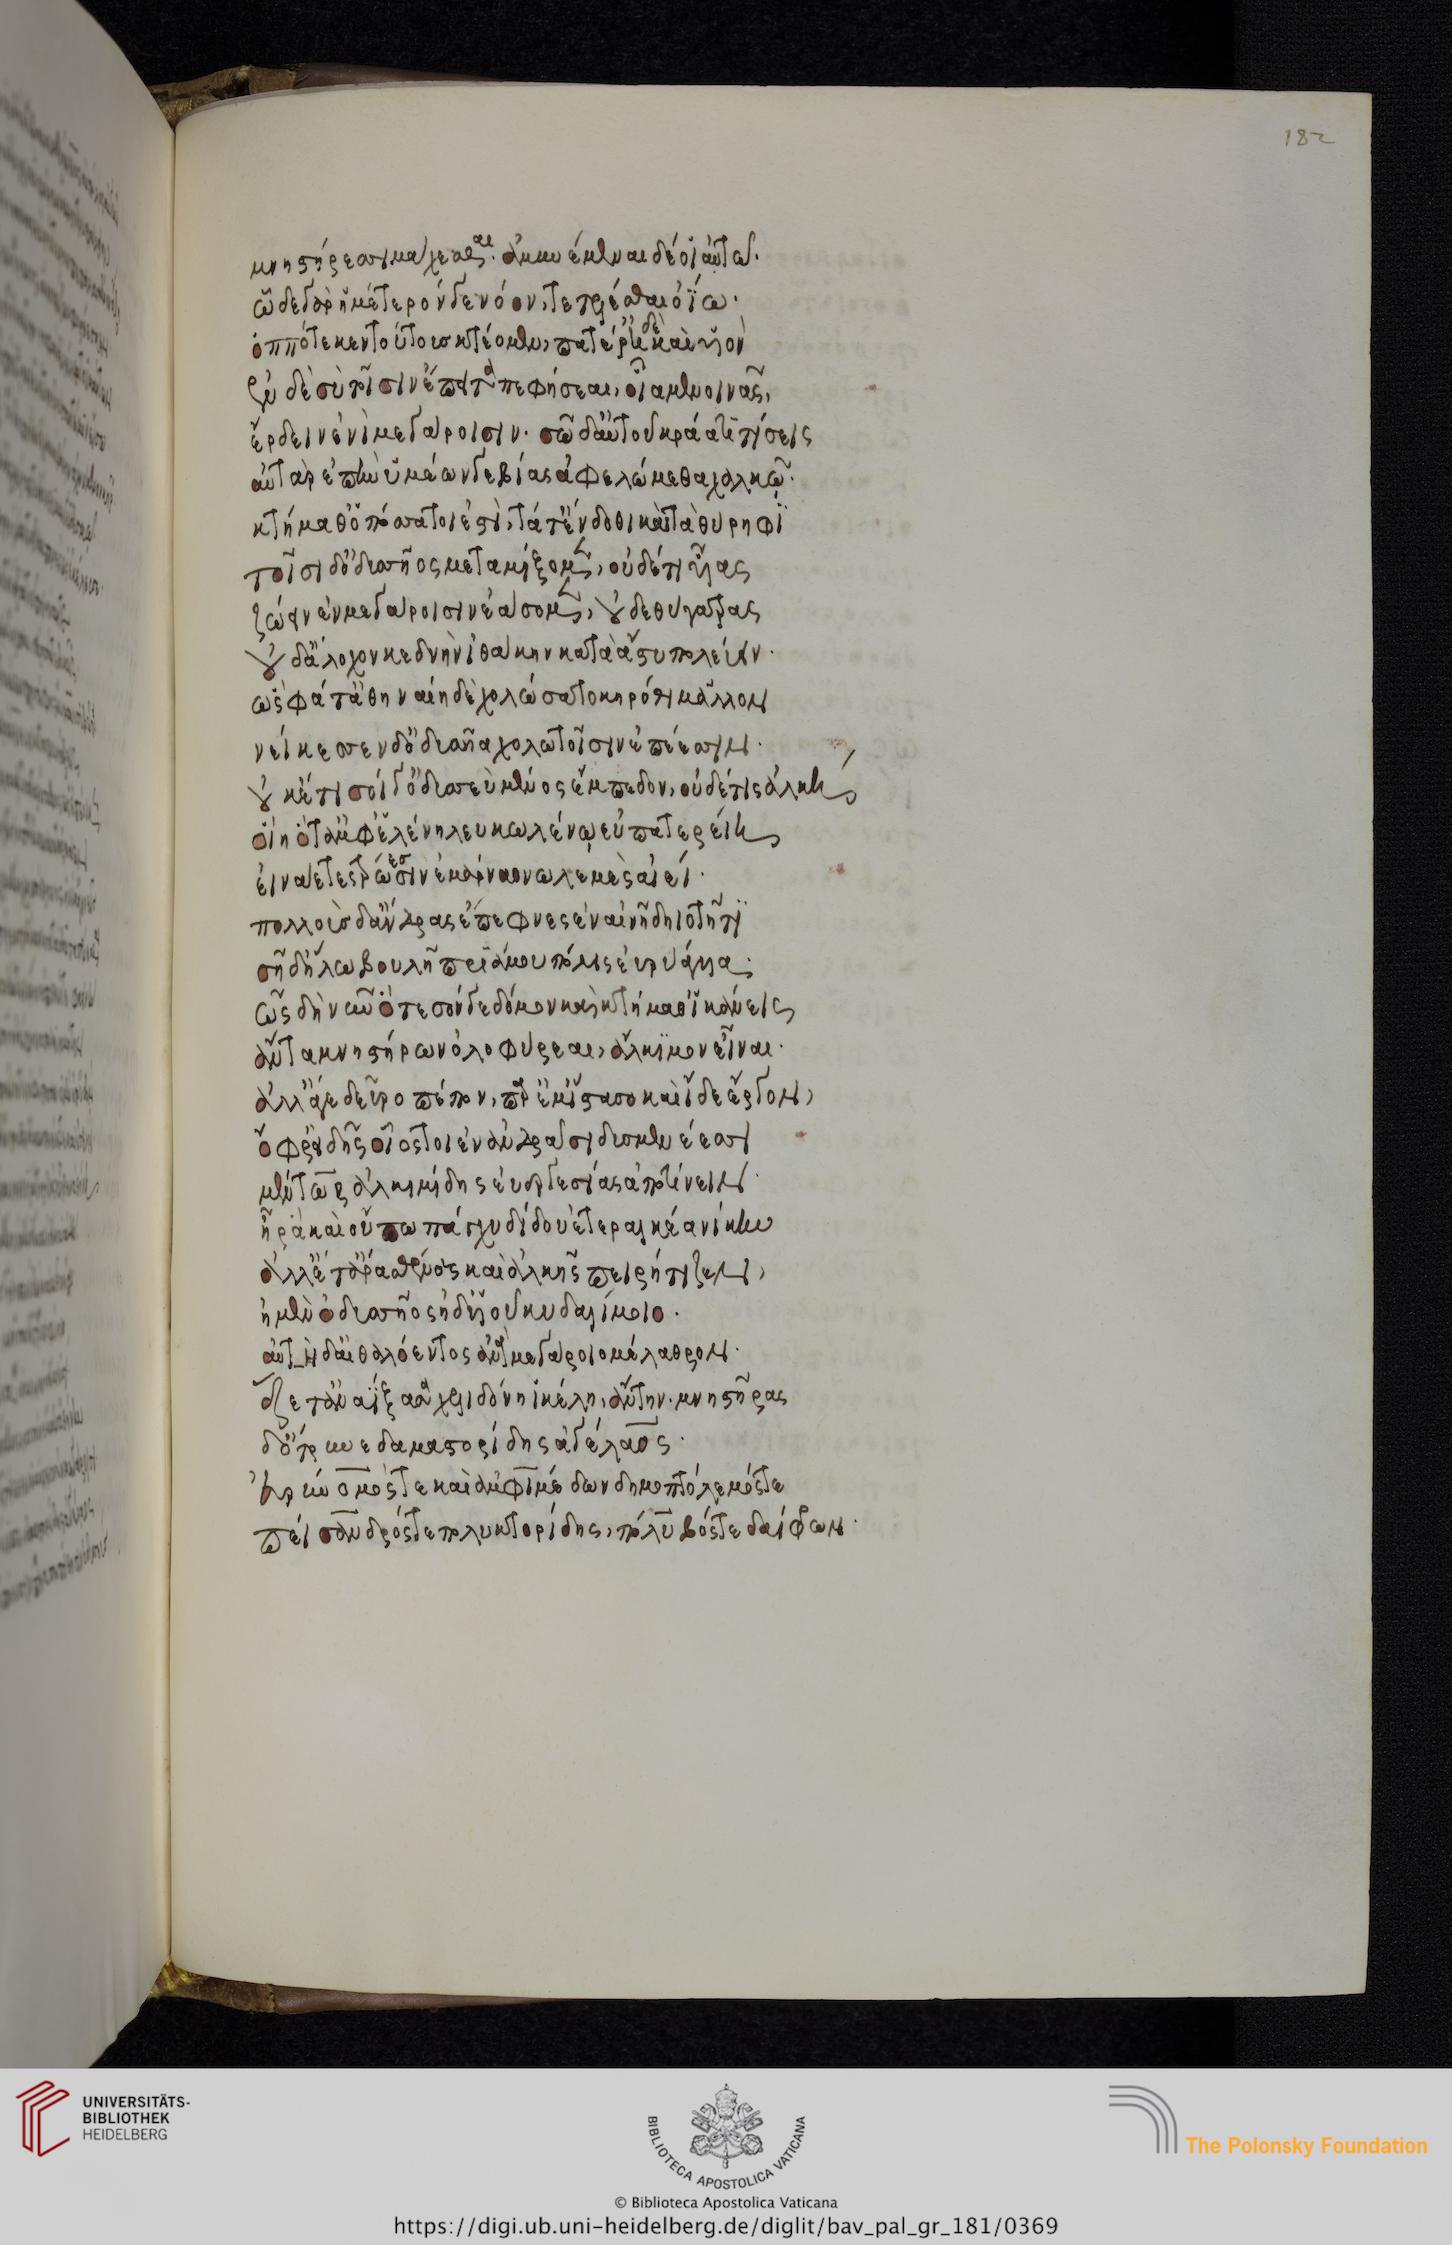 μνηστήρεσσι μάχεσθαι. ἀμυνέμεναι δέ οἱ αὐτῶ.
ὧδε γὰρ ἡμέτερόνγε νόον, τελέεσθαι ὀΐω.
ὁππότε κεν τούτοις κτέομεν, πατέρ' ἠδὲ καὶ υἱὸν
ἐν δὲ σὺ τοῖσιν ἔπειτα πεφήσεαι, οἷα μενοινᾶς,
ἔρδειν ἐνὶ μεγάροισιν. σῶ δ' αὐτοῦ κράατι τίσεις
αὐτὰρ ἐπὴν ὑμέων γε βίας ἀφελώμεθα χαλκῶ.
κτήμαθ' ὁπόσσα τοι ἐστὶ, τά τ' ἔνδοθι καὶ τὰ θύρηφι
τοῖσι δ' ὀδυσσῆος μεταμίξομεν, οὐδέ τι υἷας
ζώειν ἐν μεγάροισιν ἐάσομεν, οὐδὲ θύγατρας
οὐδ' ἄλοχον κεδνὴν ἰθάκην κατὰ ἄστυ πολεύειν.
ὣς φάτ' ἀθηναίη δὲ χολώσατο κηρόθι μᾶλλον
νείκεσσεν δ' ὀδυσῆα χολωτοῖσιν ἐπέεσσιν.
οὐκέτι σοίγ' ὀδυσεὺ μένος ἔμπεδον, οὐδέ τις ἀλκὴ,
οἵη ὅτ' ἀμφ' ἑλένη λευκωλένω εὐπατερείη,
εἰναετες τρώεσσιν ἐμάρναο νωλεμὲς αἰεί.
πολλοὺς δ' ἄνδρας ἔπεφνες ἐν αἰνῆ δηϊοτῆτι
σῆ δ' ἥλω βουλῆ πριάμου πόλις εὐρυάγυια.
πῶς δὴ νῦν ὅτε σόνγε δόμον καὶ κτήμαθ' ἱκάνεις
ἄντα μνηστήρων ὀλοφύρεαι, ἄλκιμον εἶναι.
ἀλλ' ἄγε δεῦρο πέπον, παρ' ἔμ' ἵστασο καὶ ἴδε ἔργον,
ὄφρ' εἰδῆς οἷος τοι ἐν ἀνδράσι δυσμενέεσσι
μέντωρ ἀλκιμίδης εὐεργεσίας ἀποτίνειν.
ἦ ῥα καὶ οὔπω πάγχυ δίδου ἑτεραλκέα νίκην
ἀλλ' ἔτ' ἄρα σθένεός καὶ ἀλκῆς πειρήτιζεν,
ἠμὲν ὀδυσσῆος ἠδ' υἱοῦ κυδαλίμοιο.
αὐτὴ δ' αἰθαλόεντος ἀνὰ μεγάροιο μέλαθρον.
ἕζετ' ἀναΐξασα χελιδόνη ἰκέλη, ἄντην. μνηστῆρας
δ' ὤτρυνε δαμαστορίδης ἀγέλαος.
εὐρύνομός τε καὶ ἀμφιμέδων δημοπτόλεμός τε
πείσανδρός τε πολυκτορίδης, πόλυβός τε δαίφρων.
182
UNIVERSITÄTS-
BIBLIOTHEK
HEIDELBERG
BIBLIOTECA APOSTOLICA VATICANA
The Polonsky Foundation
© Biblioteca Apostolica Vaticana
https://digi.ub.uni-heidelberg.de/diglit/bav_pal_gr_181/0369